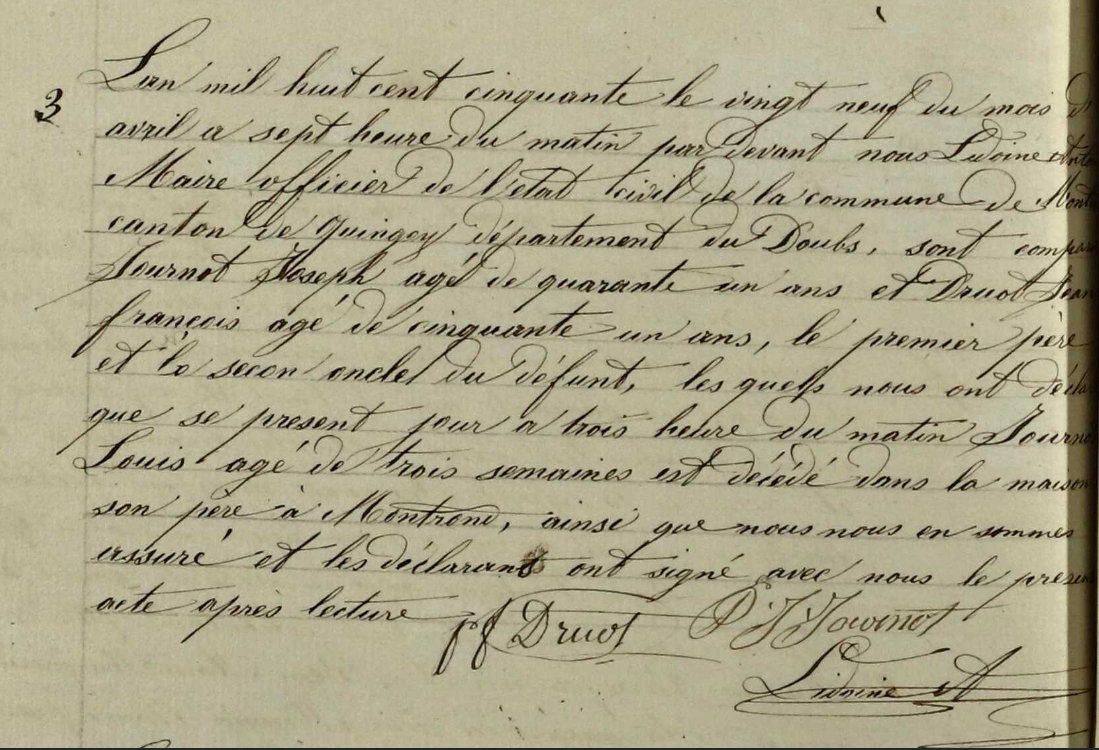 3
L'an mil huit cent cinquante le vingt neuf du mois d'
avril a sept heure du matin par devant nous Lidoine Anto
Maire officier de l'état civil de la commune de Mont
canton de Quingey département du Doubs, sont compar
Journot Joseph agé de quarante un ans et Druot Jean
françois agé de cinquante un ans, le premier père
et le secon oncle du défunt, les quels nous ont décla
que se present jour a trois heure du matin Journo
Louis agé de trois semaines est décédé dans la maison
son père à Montrond, ainsi que nous nous en sommes
assuré et les déclarants ont signé avec nous le presen
acte après lecture
jf Druot P. J. Journot
Lidoine A